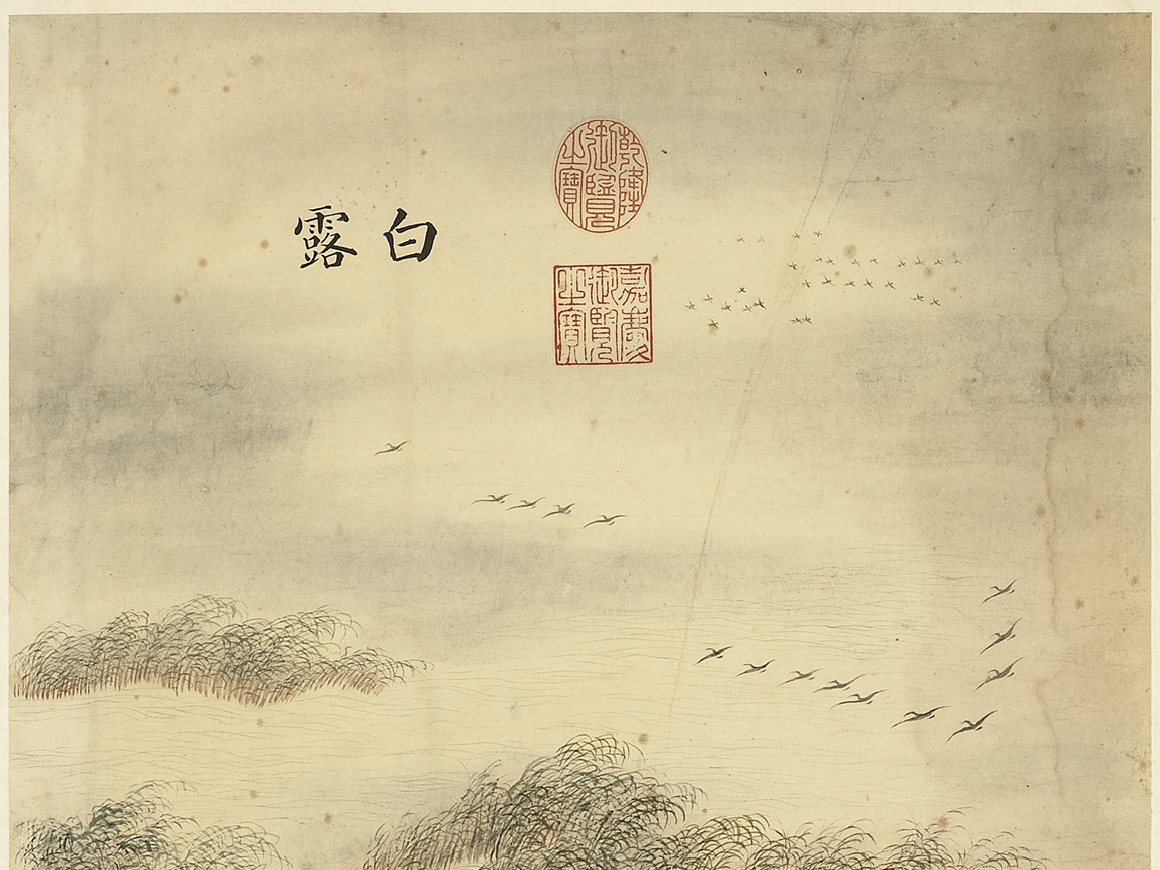 白露
乾隆御覽之寶
嘉慶御覽之寶